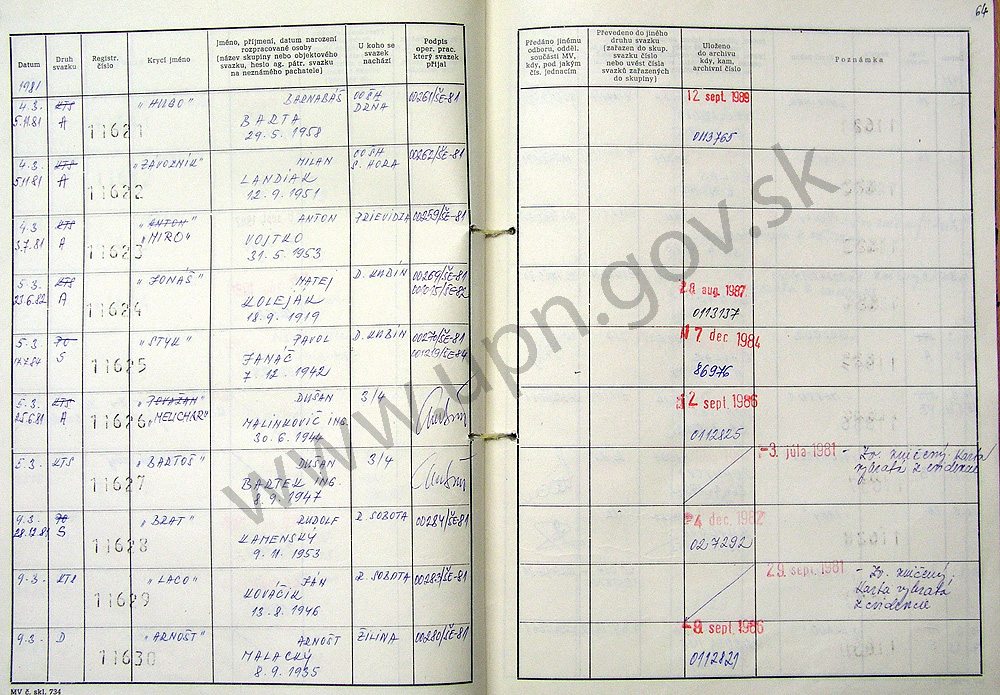 64
Datum
Druh svazku
Registr. číslo
Krycí jméno
Jméno, příjmení, datum narození
rozpracované osoby
(název skupiny nebo objektového
svazku, heslo ag. pátr. svazku
na neznámého pachatele)
U koho se
svazek
nachází
Podpis
oper. prac.
který svazek
přijal
Předáno jinému
odboru, odděl.
součásti MV,
kdy, pod jakým
čís. jednacím
Převedeno do jiného
druhu svazku
(zařazen do skup.
svazku číslo
nebo uvést čísla
svazků zařazených
do skupiny)
Uloženo
do archivu
kdy, kam,
archivní číslo
Poznámka
1981
4.3. KTS BARNABÁŠ OOČH 00261/ŠE-81 12. sept. 1989
5.11.81 A 11621 BARTA DRŇA
29.5.1958 0113765
4.3. KTS „ZÁVOZNÍK" MILAN 00262/ŠE-81
5.11.81 A 11622 LANDIAK
12.9.1951
4.3 KTS „ANTON" ANTON PRIEVIDZA 00259/ŠE-81
3.7.81 A 11623 „MIRO" VOJTKO
31.5.1953
5.3. KTS „JONÁŠ" MATEJ D. KUBÍN 00269/ŠE-81
A 11624 KOLEJÁK 28 aug. 1987
18.9.1919 0113137
5.3. PO „STYK" PAVOL D. KUBÍN 00270/ŠE-81 17 dec. 1984
S 11625 JANÁČ
7.12.1942 86976
5.3. KTS „POVAŽAN" DUŠAN 3/4 12. sept. 1986
25.6.81 A 11626 „MELICHAR" MALINKOVIČ ING.
30.6.1944 0112825
5.3. KTS „BARTOŠ" DUŠAN 3/4 -3. júla 1981 - Zv. zničený. Karta
11627 BARTEK ING. vybratá z evidencie
8.9.1947
9.3. PO „BRAT" RUDOLF R. SOBOTA 00284/ŠE-81 -4 dec. 1982
28.12.81 S 11628 KAMENSKÝ
9.11.1953 027292
9.3. KTS „LACO" JÁN R. SOBOTA 00283/ŠE-81 29. sept. 1981 - Zv. zničený,
11629 KOVÁČIK Karta vybratá
13.8.1946 z evidencie
9.3. D „ARNOŠT" ARNOŠT ŽILINA 00280/ŠE-81 -8. sept. 1986
11630 MALACKÝ
8.9.1935 0112821
MV č. skl. 734
www.upn.gov.sk